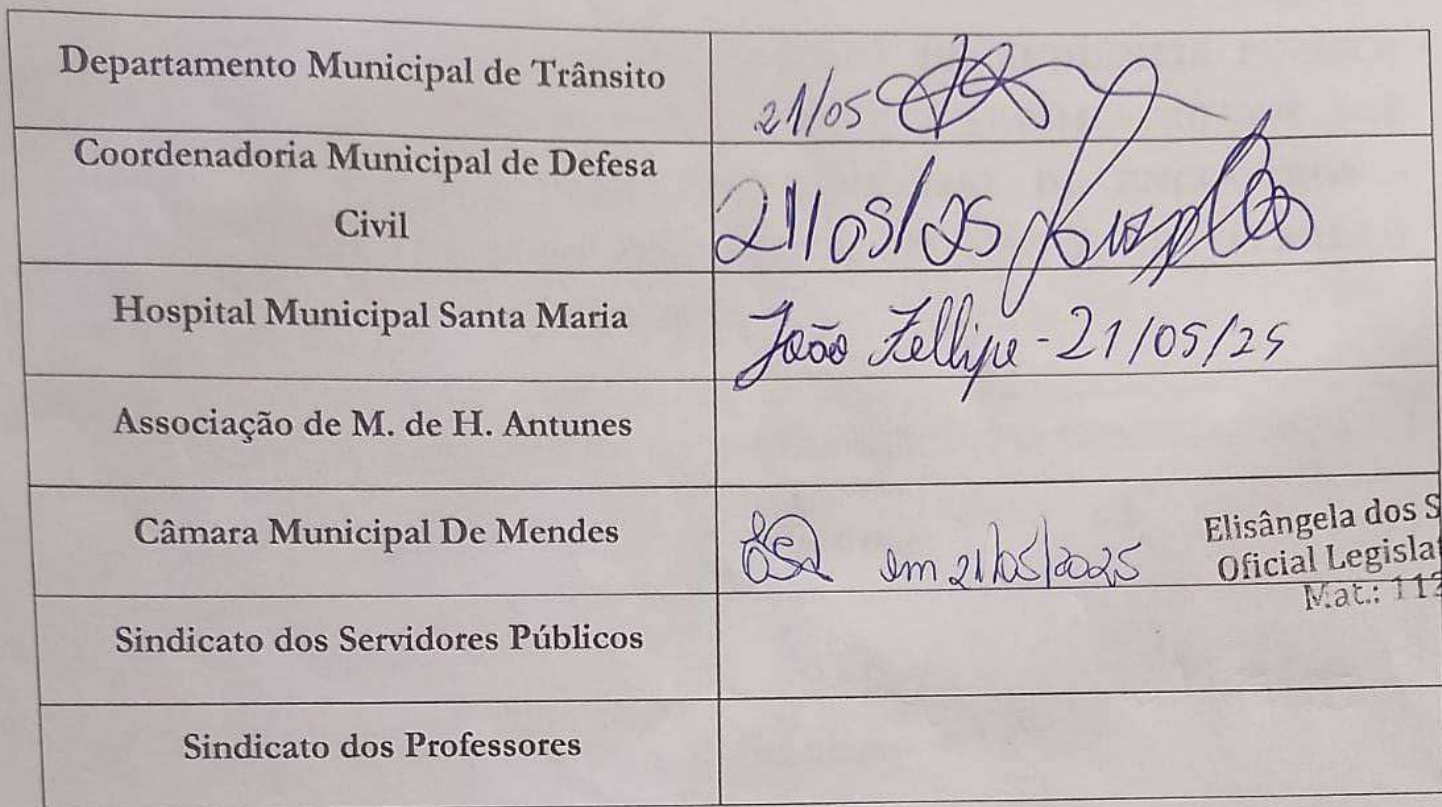 Departamento Municipal de Trânsito
21/05
Coordenadoria Municipal de Defesa
Civil
21/05/25
Hospital Municipal Santa Maria
João Fellipe - 21/05/25
Associação de M. de H. Antunes
Câmara Municipal De Mendes
em 21/05/2025
Elisângela dos S
Oficial Legisla
Mat.: 112
Sindicato dos Servidores Públicos
Sindicato dos Professores